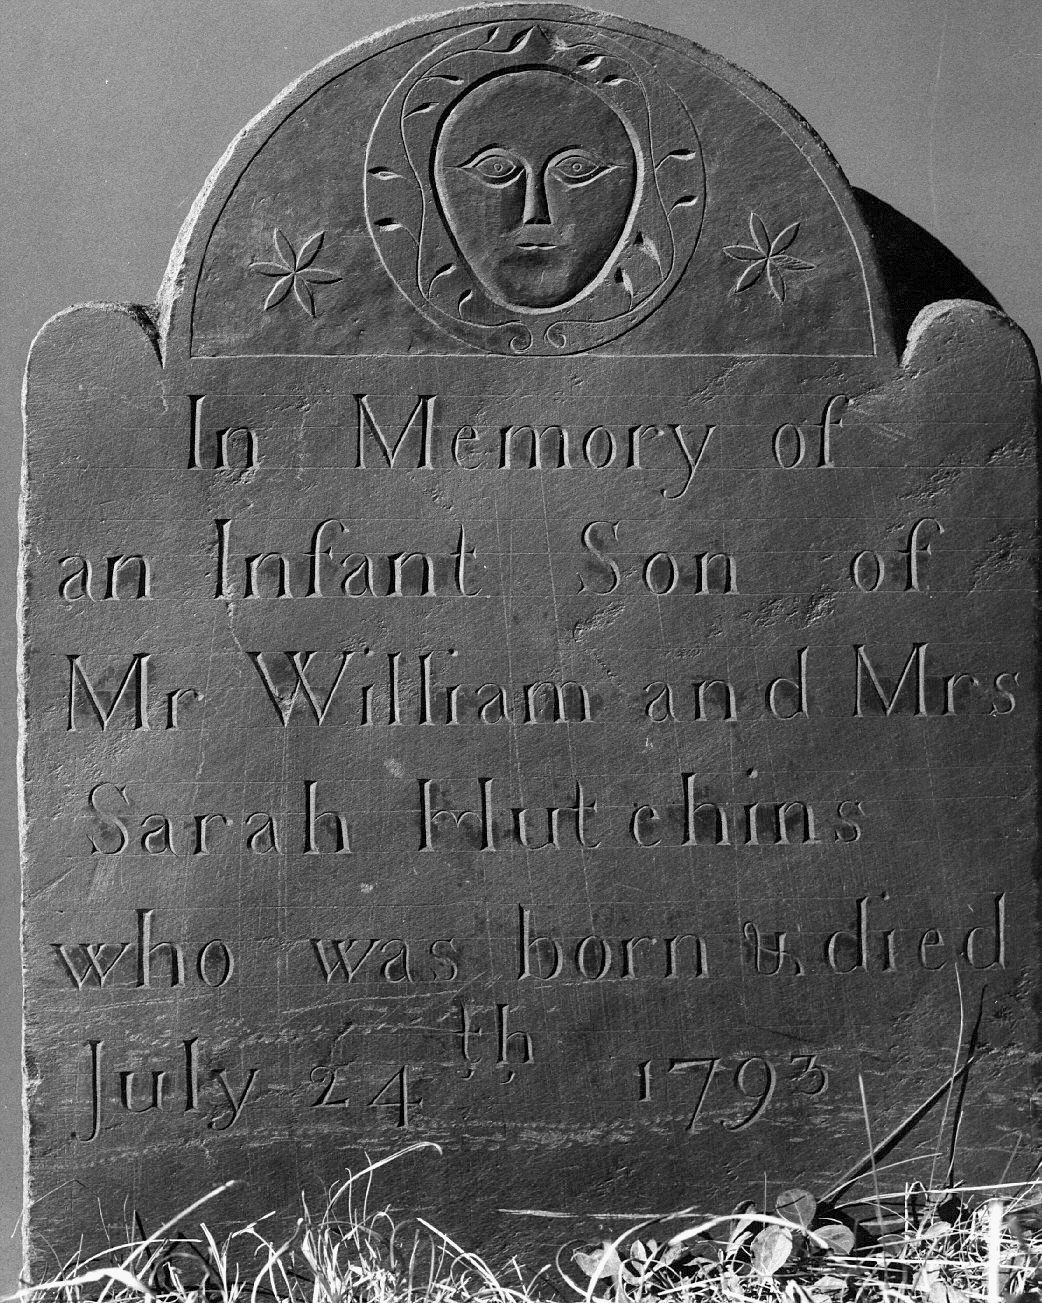 In Memory of
an Infant Son of
Mr William and Mrs
Sarah Hutchins
who was born & died
July 24th 1793